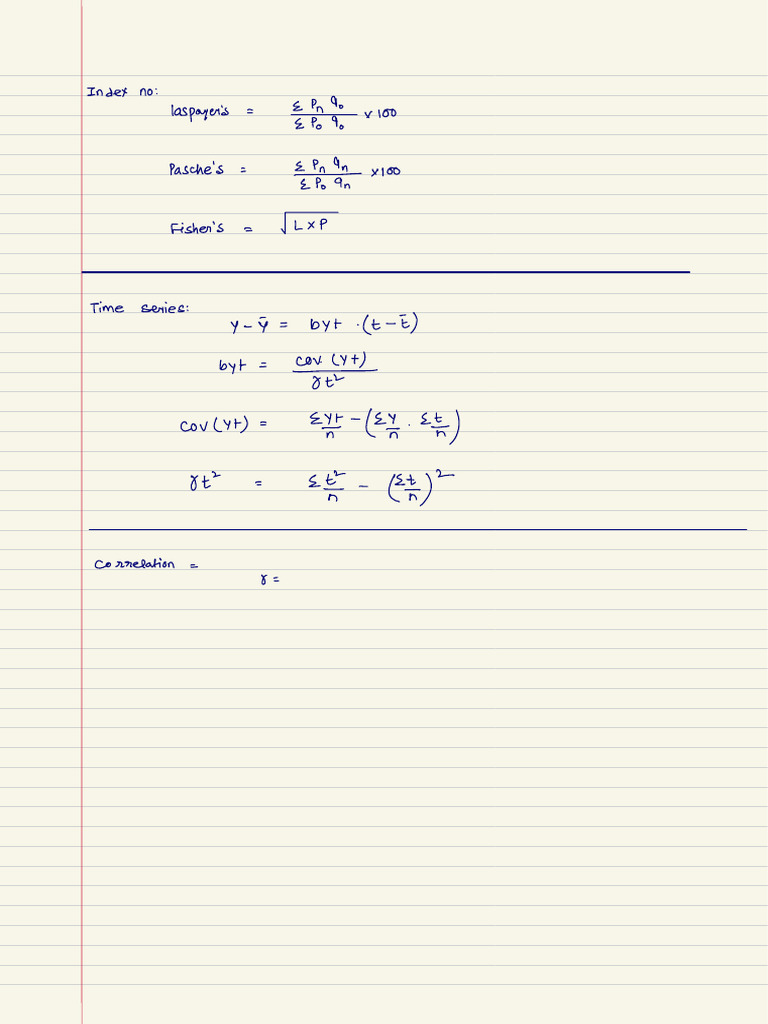 Index no:
laspayer's = Σ Pn q₀ / Σ P₀ q₀ × 100
Pasche's = Σ Pn qn / Σ P₀ qn × 100
Fisher's = √(L × P)
Time series:
y - ȳ = byt · (t - t̄)
byt = cov (yt) / γt²
cov (yt) = Σyt/n - (Σy/n · Σt/n)
γt² = Σt²/n - (Σt/n)²
Correlation =
γ =